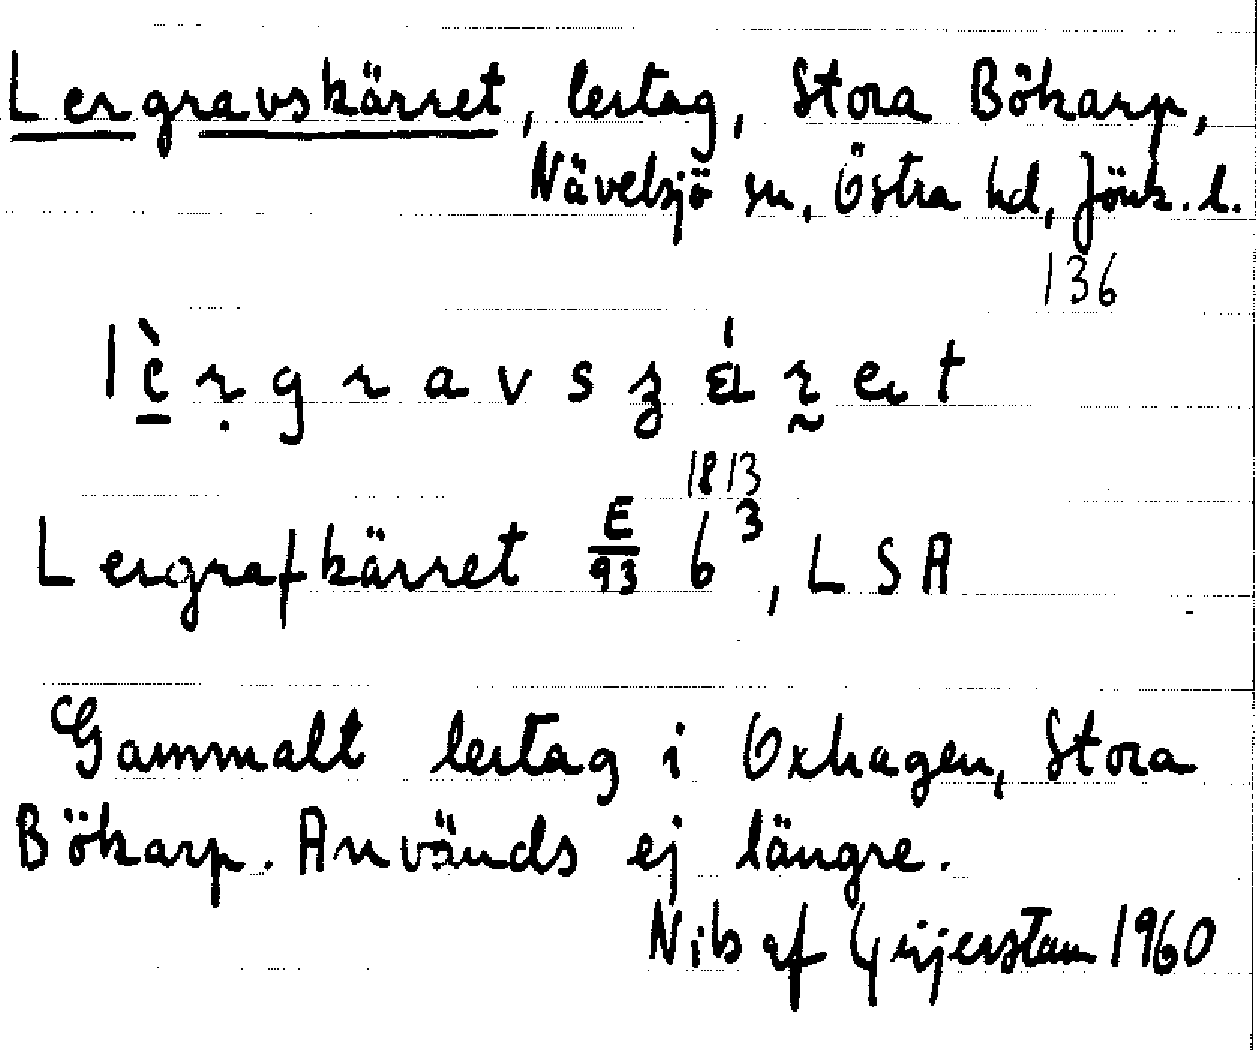 Lergravskärret, lertag, Stora Bökarp,
Nävelsjö sn, Östra hd, Jönk. l.
136
Lergrafkärret E/93 6³, LSA
1813
Gammalt lertag i Oxhagen, Stora
Bökarp. Används ej längre.
Nils af Geijerstam 1960